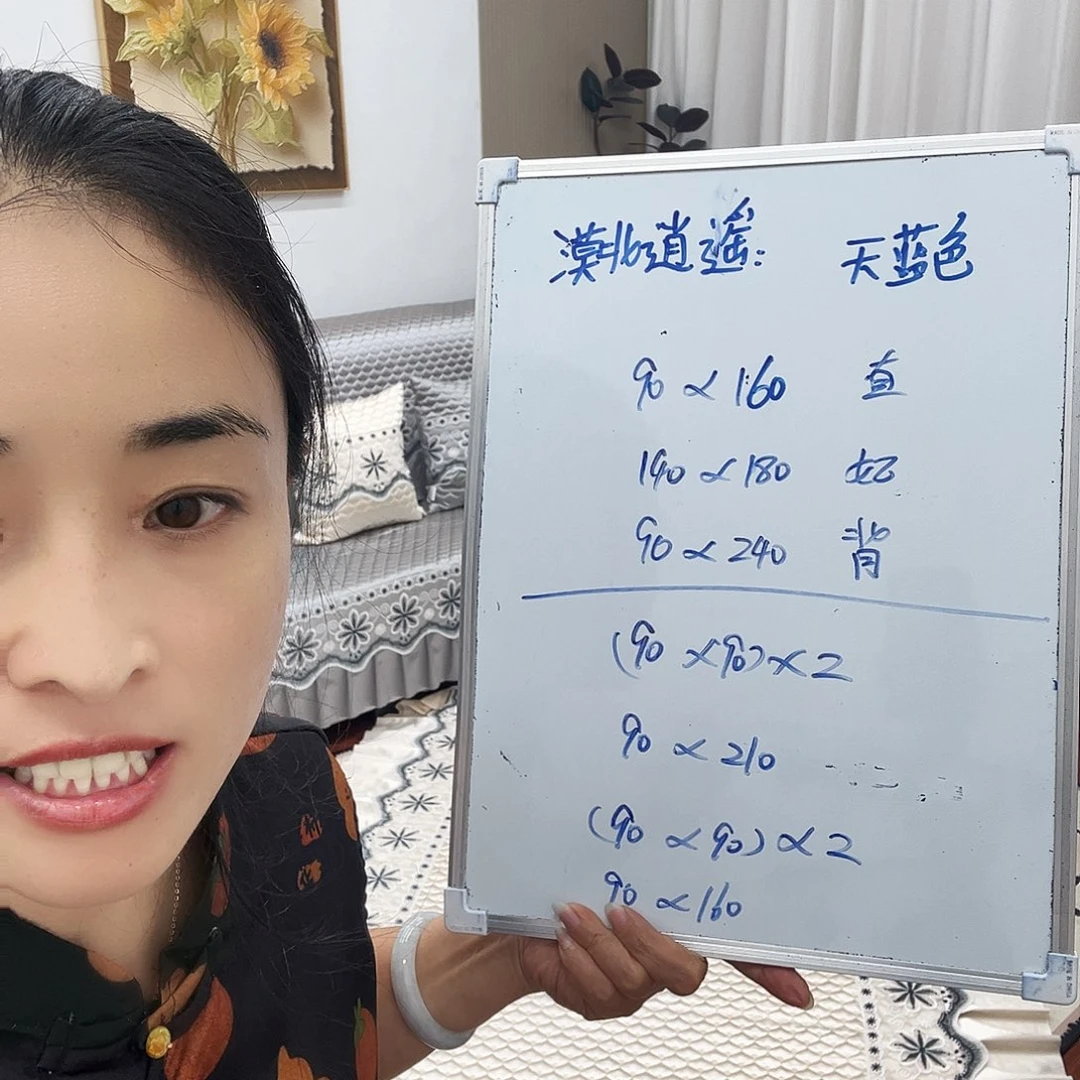 漠北逍遥: 天蓝色
90×160 直
190×180 妃
90×240 背
(90×90)×2
90×210
(90×90)×2
90×160